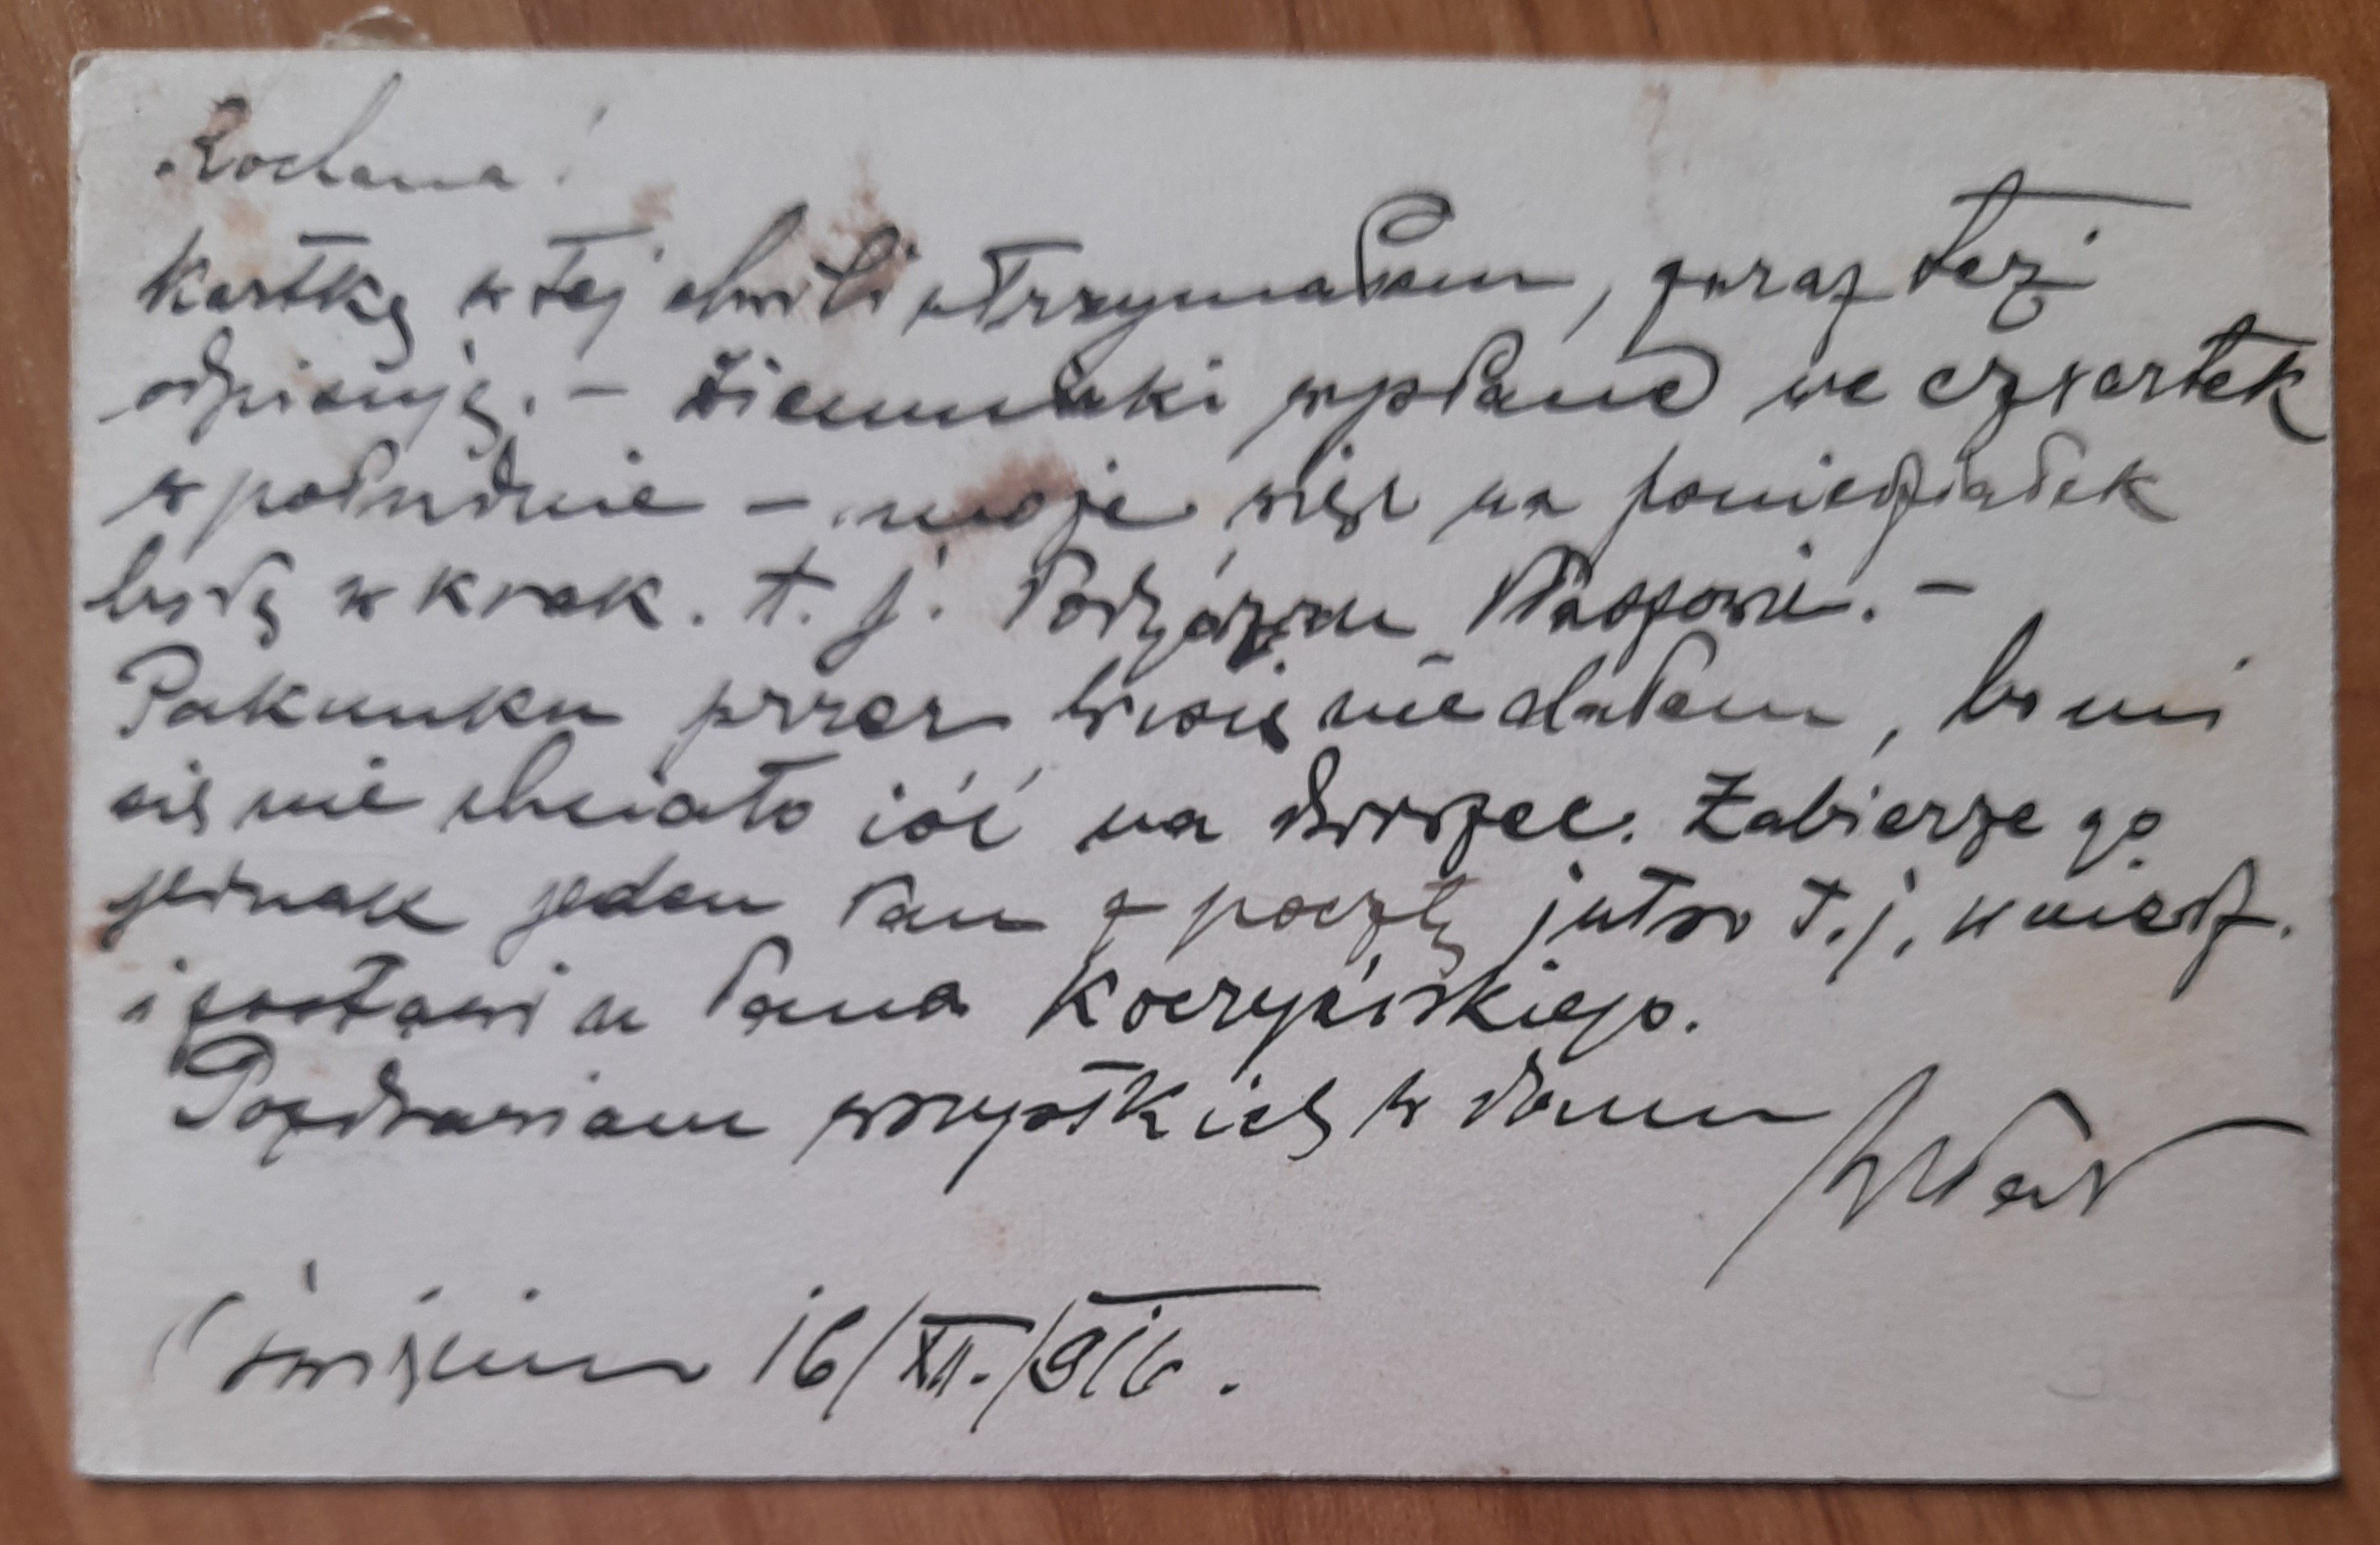 Kochana!
Kartkę w tej chwili otrzymałem, zaraz też
odpisuję. – Ziemniaki wysłane we czwartek
w południe – może więc na poniedziałek
będą w Krak. t. j. Podgórzu Płaszowie. –
Pakunku przez Wisię nie dałem, bo mi
się nie chciało iść na dworzec. Zabierze go
jednak jeden Pan z poczty jutro t. j. w niedz.
i zostawi u Pana Koczyńskiego.
Pozdrawiam wszystkich w domu
Wład
Oświęcim 16/XII./916.